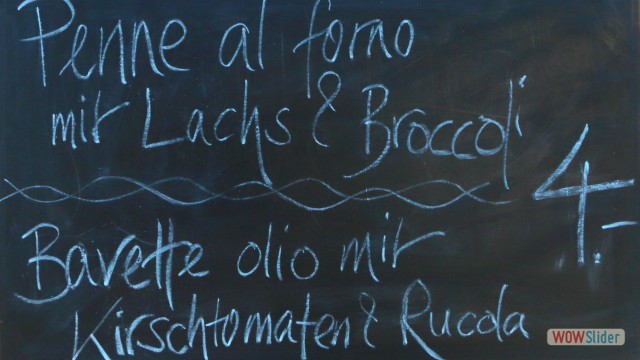 Penne al forno
mit Lachs & Broccoli
4.-
Bavette olio mit
Kirschtomaten & Rucola
WOWSlider